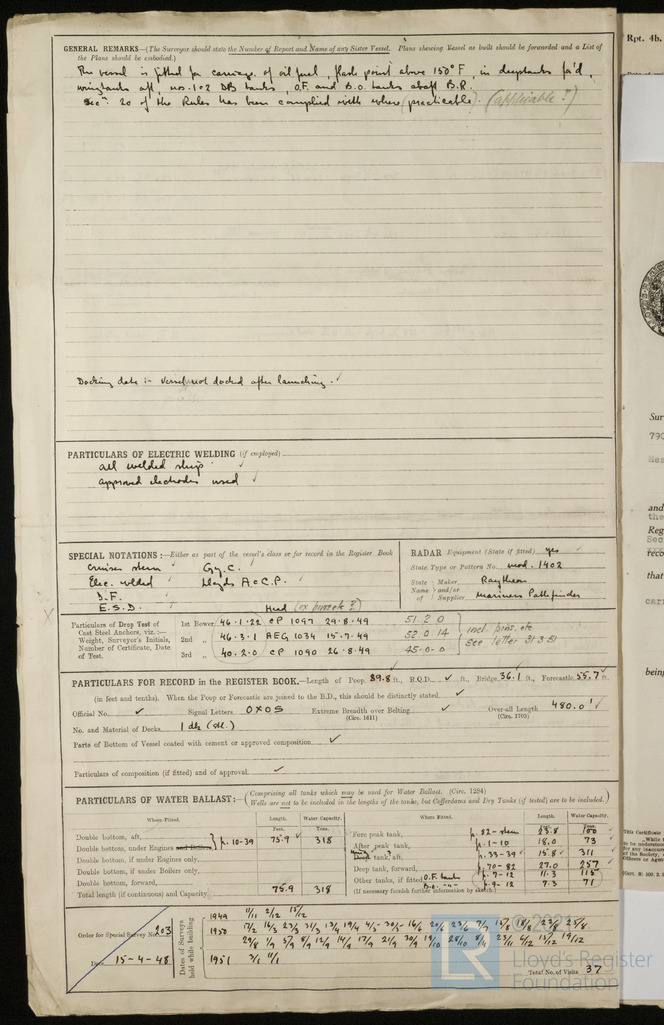 GENERAL REMARKS—(The Surveyor should state the Number of Report and Name of any Sister Vessel. Plans shewing Vessel as built should be forwarded and a List of
the Plans should be embodied.)
The vessel is fitted for carriage of oil fuel, flash point above 150° F, in deeptanks for'd,
wingtanks aft, nos. 1 & 2 DB tanks, O.F. and D.O. tanks abaft B.R.
Sec. 20 of the Rules has been complied with where (practicable). (applicable?)
Docking date :- Vessel not docked after launching. ✓
PARTICULARS OF ELECTRIC WELDING (if employed)
all welded ship ✓
approved electrodes used ✓
SPECIAL NOTATIONS :—Either as part of the vessel's class or for record in the Register Book
Cruiser stern ✓ Gy.C. ✓
Elec. welded ✓ Lloyds A & C.P. ✓
D.F. ✓
E.S.D. ✓
RADAR Equipment (State if fitted) yes ✓
State Type or Pattern No. mod. 1402
State Name of Maker and/or Supplier
Raytheon
Mariners Pathfinder
Head (ex pins etc?)
Particulars of Drop Test of Cast Steel Anchors, viz.:— Weight, Surveyor's Initials, Number of Certificate, Date of Test.
1st Bower 46.1.22 CP 1097 29.8.49 51.2.0
2nd „ 46.3.1 AEG 1034 15.7.49 52.0.14
3rd „ 40.2.0 CP 1090 26.8.49 45.0.0
incl. pins, etc
see letter 31.3.51
PARTICULARS FOR RECORD in the REGISTER BOOK.—Length of Poop 89.8 ft., R.Q.D. ✓ ft., Bridge 36.1 ft., Forecastle 55.7 ft.
(in feet and tenths). When the Poop or Forecastle are joined to the B.D., this should be distinctly stated ✓
Official No. ✓ Signal Letters OXOS Extreme Breadth over Belting ✓ Over-all Length 480.0' ✓
(Circ. 1611) (Circ. 1703)
No. and Material of Decks 1 dk (stl.)
Parts of Bottom of Vessel coated with cement or approved composition ✓
Particulars of composition (if fitted) and of approval ✓
PARTICULARS OF WATER BALLAST:— (Comprising all tanks which may be used for Water Ballast. (Circ. 1284)
Wells are not to be included in the lengths of the tanks, but Cofferdams and Dry Tanks (if tested) are to be included.)
Where Fitted. Length. Water Capacity. Where Fitted. Length. Water Capacity.
Feet. Tons.
Double bottom, aft,
Double bottom, under Engines and Boilers, p. 10-39 75.9 318
Double bottom, if under Engines only,
Double bottom, if under Boilers only,
Double bottom, forward,
Total length (if continuous) and Capacity, 75.9 318
Fore peak tank, p. 82-stem 23.8 100
After peak tank, p. -1-10 18.0 73
Deep tank, aft, p. 33-39 15.8 311
Deep tank, forward, p. 70-82 27.0 257
Other tanks, if fitted O.F. tanks p. 7-12 11.3 115
D.O. -"- p. 9-12 7.3 71
(If necessary furnish further information by sketch.)
Order for Special Survey No. 203
Date 15-4-48
Dates of Surveys held while building
1949 11/11 2/12 15/12
1951 3/1 11/1
Total No. of Visits 37
© 2021
LR
Lloyd's Register
Foundation
Rpt. 4b.
Sur
790
Reg
that
being
This Certificate